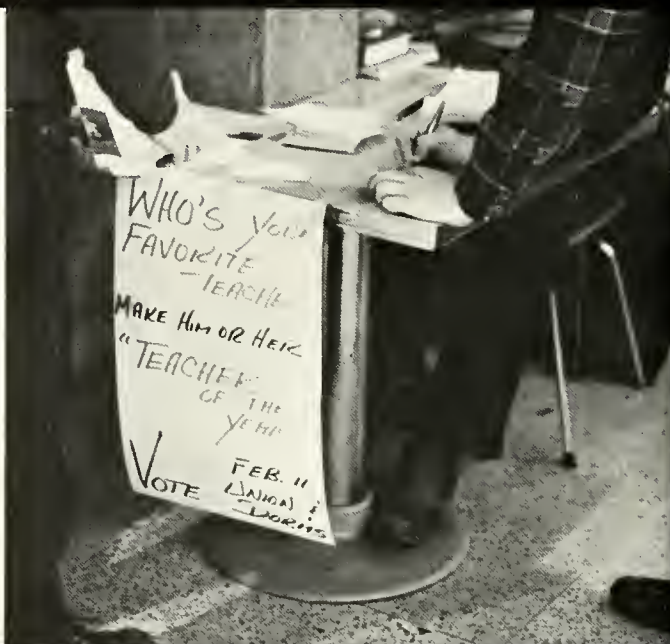 WHO'S YOUR
FAVORITE
TEACHE
MAKE HIM OR HER
"TEACHER
OF THE
YEAR
FEB. 11
VOTE UNION &
DORMS